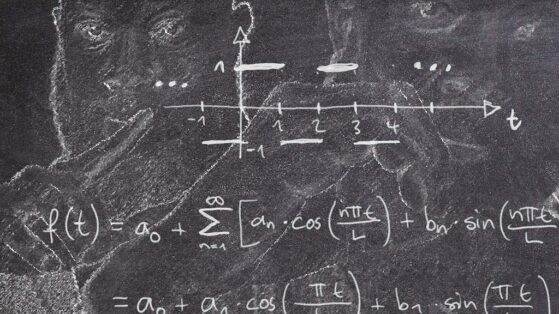 1
...
...
-1 1 2 3 4 t
-1
f(t) = a₀ + ∞∑n=1 [aₙ·cos(nπt/L) + bₙ·sin(nπt/L)
= a₀ + a₁·cos(πt/L) + b₁·sin(πt/L)